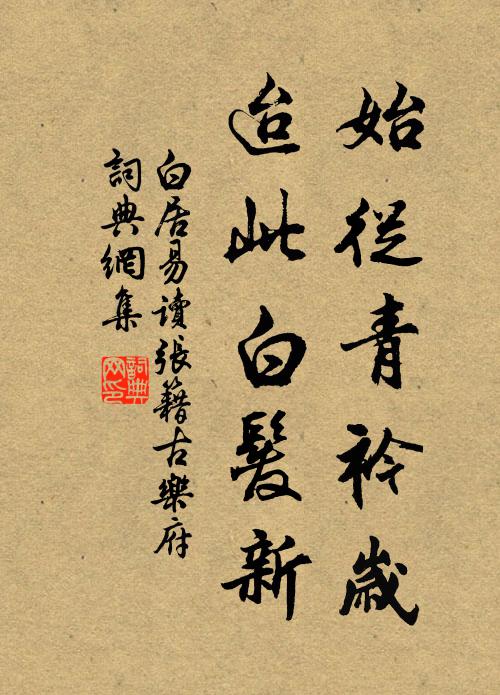 始從青衿歲
迨此白髮新
白居易讀張籍古樂府
詞典網集
詞典网印